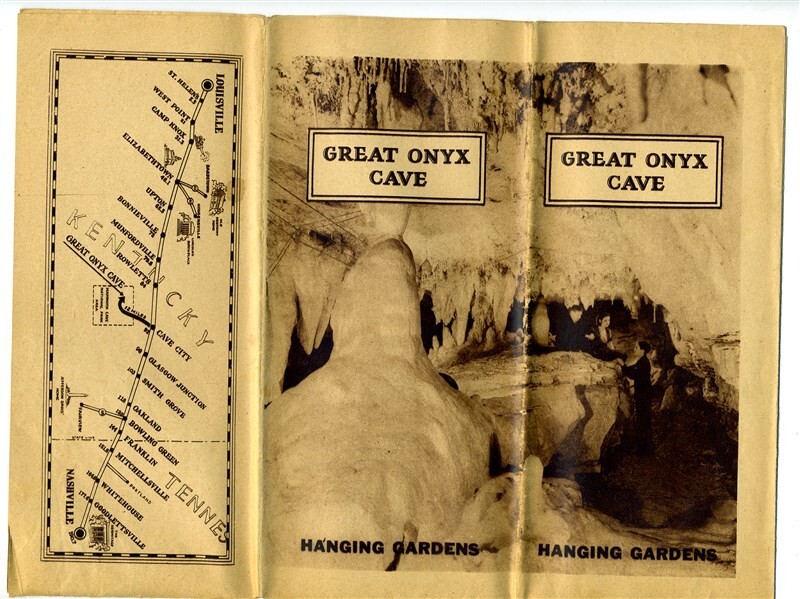 LOUISVILLE
ST. HELENS
WEST POINT
CAMP KNOX
ELIZABETHTOWN
UPTON
BONNIEVILLE
MUNFORDVILLE
ROWLETTS
KENTUCKY
GREAT ONYX CAVE
MAMMOTH CAVE
NATIONAL PARK
AREA
CAVE CITY
GLASGOW JUNCTION
SMITH GROVE
OAKLAND
BOWLING GREEN
FRANKLIN
MITCHELLSVILLE
PORTLAND
WHITEHOUSE
GOODLETTSVILLE
NASHVILLE
TENNES
FAIRVIEW
STATE LINE
GREAT ONYX
CAVE
HANGING GARDENS
GREAT ONYX
CAVE
HANGING GARDENS